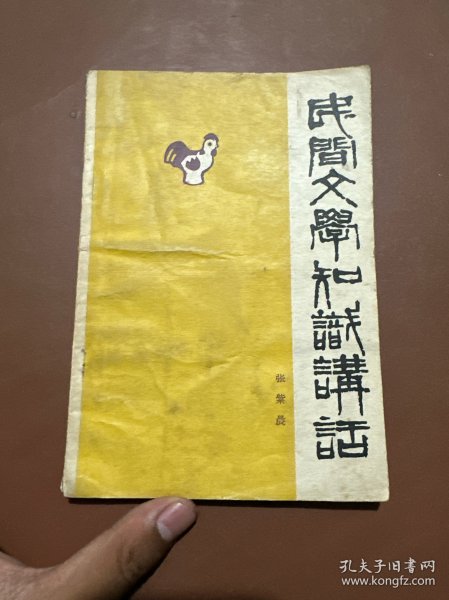 民間文學知識講話
张紫晨
孔夫子旧书网
www.kongfz.com